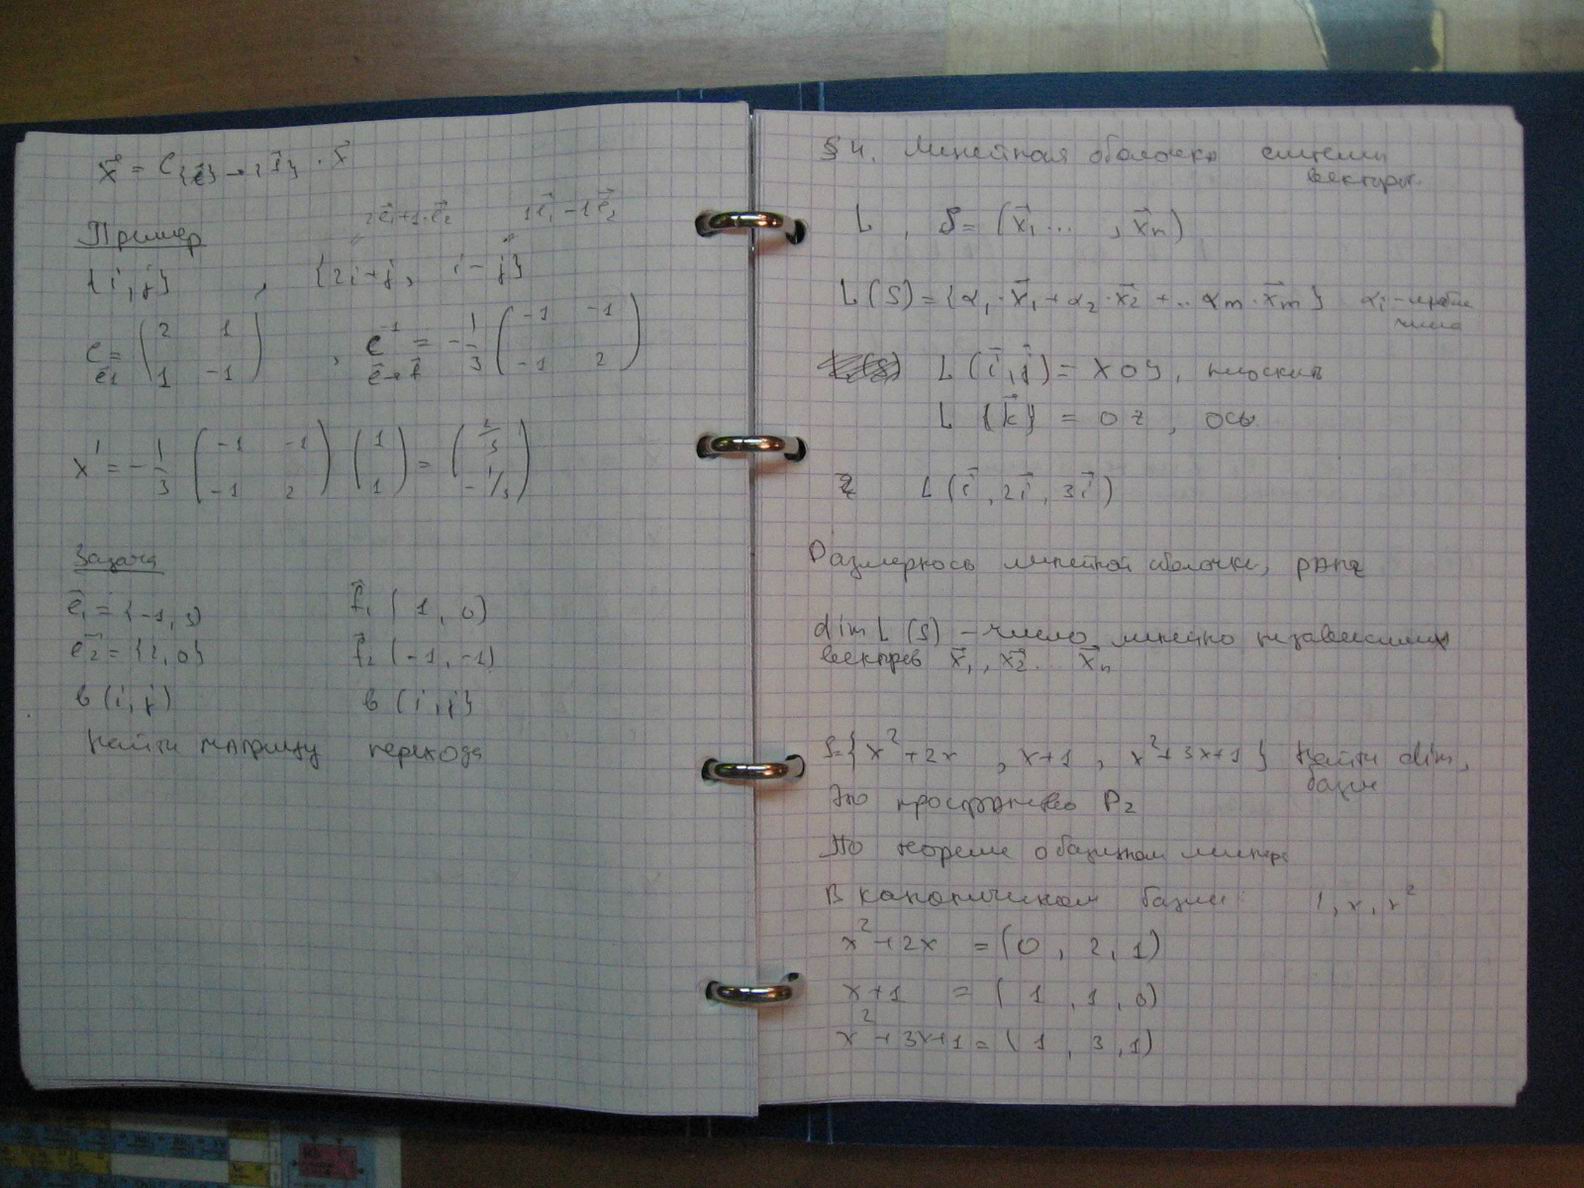 x⃗ = C{e⃗}→{f⃗} · x⃗
Пример
2e⃗₁+1·e⃗₂ 1e⃗₁-1e⃗₂
{i, j} , {2i+j, i-j}
C = (2 1; 1 -1) , C⁻¹ e⃗→f⃗ = -1/3 (-1 -1; -1 2)
x' = -1/3 (-1 -1; -1 2) (1; 1) = (2/3; -1/3)
Задача
e⃗₁ = {-1, 3} f⃗₁ (1, 0)
e⃗₂ = {2, 0} f⃗₂ (-1, -1)
в (i, j) в (i, j}
Найти матрицу перехода
§ 4. Линейная оболочка системы
векторов.
L , S = (x⃗₁ ... , x⃗n)
L(S) = {α₁·x⃗₁ + α₂·x⃗₂ + .. αm·x⃗m} αi -
числа
L (i⃗, j⃗) = XOY, плоскость
L {k⃗} = OZ, ось
L (i⃗, 2i⃗, 3i⃗)
Размерность линейной оболочки, ранг
dim L (S) - число линейно независимых
векторов x⃗₁, x⃗₂ .. x⃗n
S={x²+2x , x+1 , x²+3x+1} Найти dim,
базис
Это пространство P₂
По теореме о базисном миноре
В каноническом базисе 1, x, x²
x²+2x = (0, 2, 1)
x+1 = (1, 1, 0)
x²+3x+1 = (1, 3, 1)